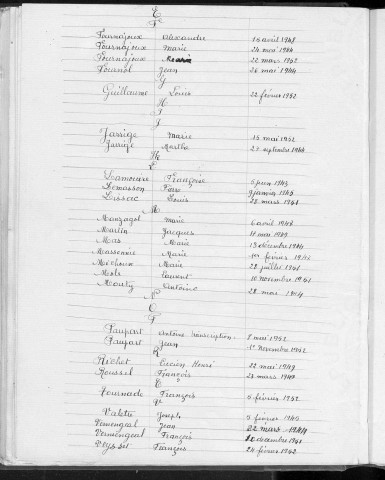 E
F
Fournajoux Alexandre 18 avril 1948
Fournajoux Marie 24 mai 1944
Fournajoux Marie 22 mars 1952
Fournol Jean 26 mai 1944
G
Guillaume Louis 22 février 1952
H
I
J
Jarrige Marie 15 mai 1952
Jarrige Marthe 23 septembre 1944
K
L
Lamouure Françoise 5 juin 1943
Lemasson 9 janvier 1945
Lissac Louis 28 mars 1941
M
Manzagol Marie 6 avril 1946
Martin Jacques 11 mai 1949
Mas Marie 13 décembre 1944
Massonvie Marie 1er février 1941
Méchoux Marie 28 juillet 1941
Mols Laurent 10 novembre 1941
Mouty Antoine 28 mars 1944
N
O
P
Paupart Antoine transcription 8 mai 1952
Paupart Jean 1er novembre 1952
R
Richet Lucien Henri 22 mai 1949
Roussel François 21 mars 1947
T
Tournade François 5 février 1952
V
Valette Joseph 5 février 1945
Vermengeal Jean 22 mars 1944
Vermengeal François 10 décembre 1941
Veysset François 24 février 1942